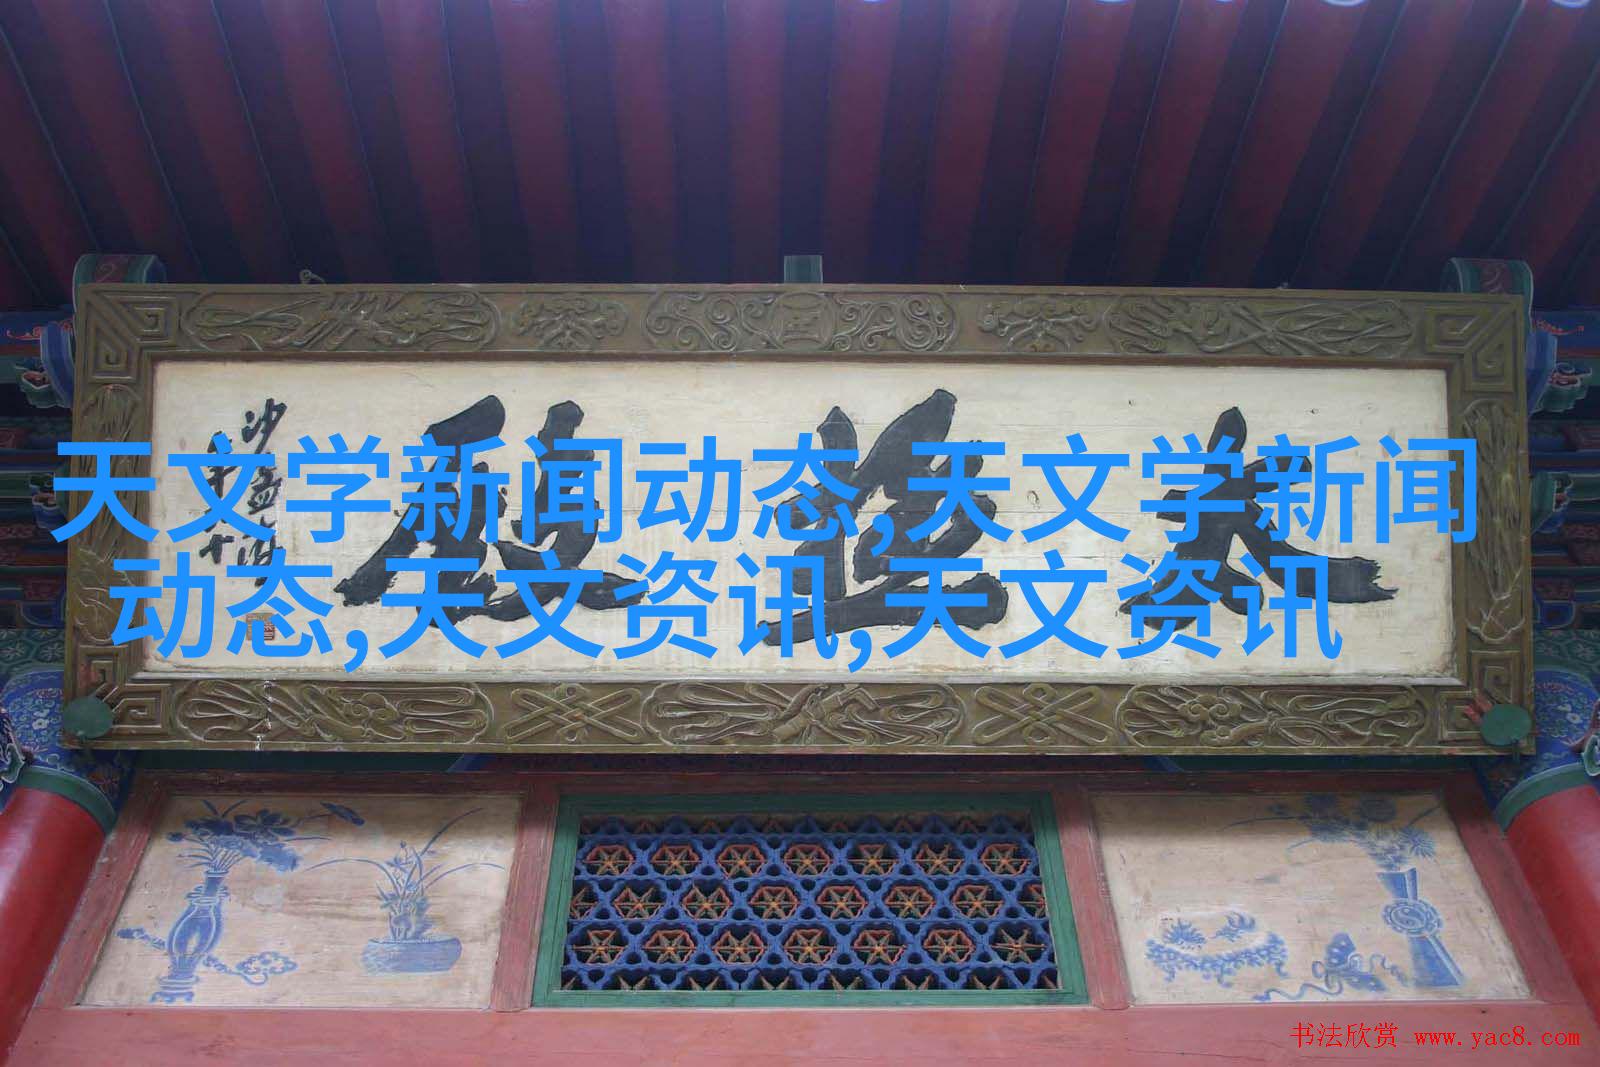 天文学新闻动态,天文学新闻
动态,天文资讯,天文资讯
太益殿
沙孟海
书法欣赏 www.yac8.com